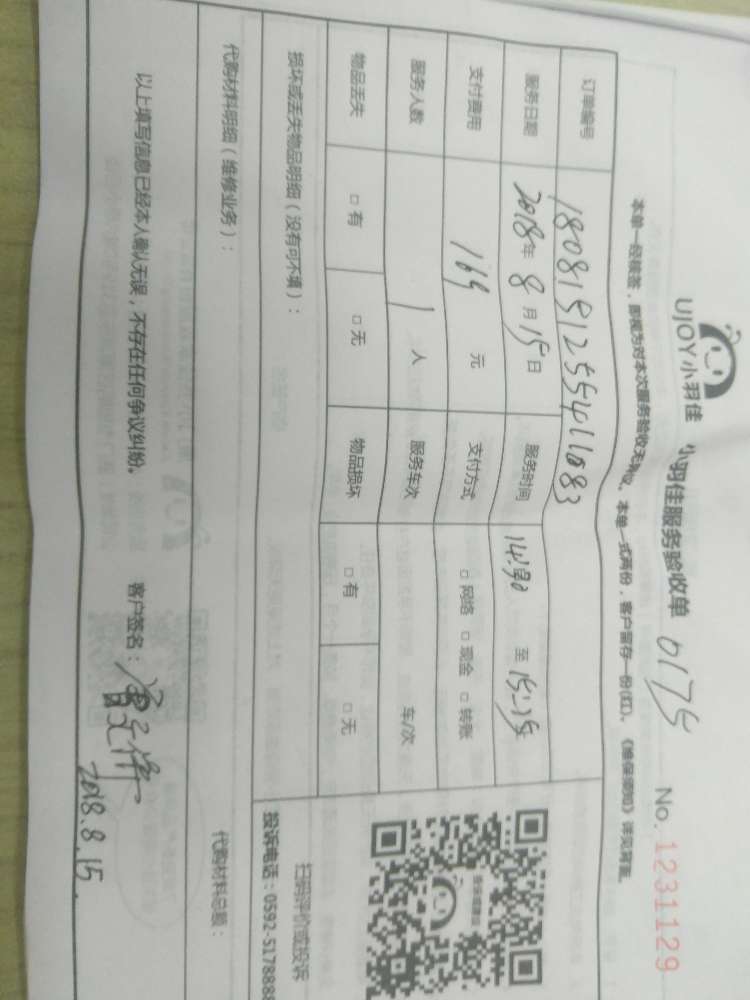 UJOY小羽佳 小羽佳服务验收单 0175 No. 1231129
本单一经核签，即视为对本次服务验收无异议。本单一式两份，客户留存一份(红)。《维保须知》详见背面。
订单编号 1808151255411083
服务日期 2018年 8 月 15 日 服务时间 14:30 至 15:15
支付费用 169 元 支付方式 □ 网络 □ 现金 □ 转账
服务人数 1 人 服务车次 车/次
物品丢失 □ 有 □ 无 物品损坏 □ 有 □ 无
损坏或丢失物品明细（没有可不填）：
扫码评价或投诉
投诉电话：0592-5178888
代购材料明细（维修业务）：
代购材料总额：
以上填写信息已经本人确认无误，不存在任何争议纠纷。 客户签名：
2018.8.15